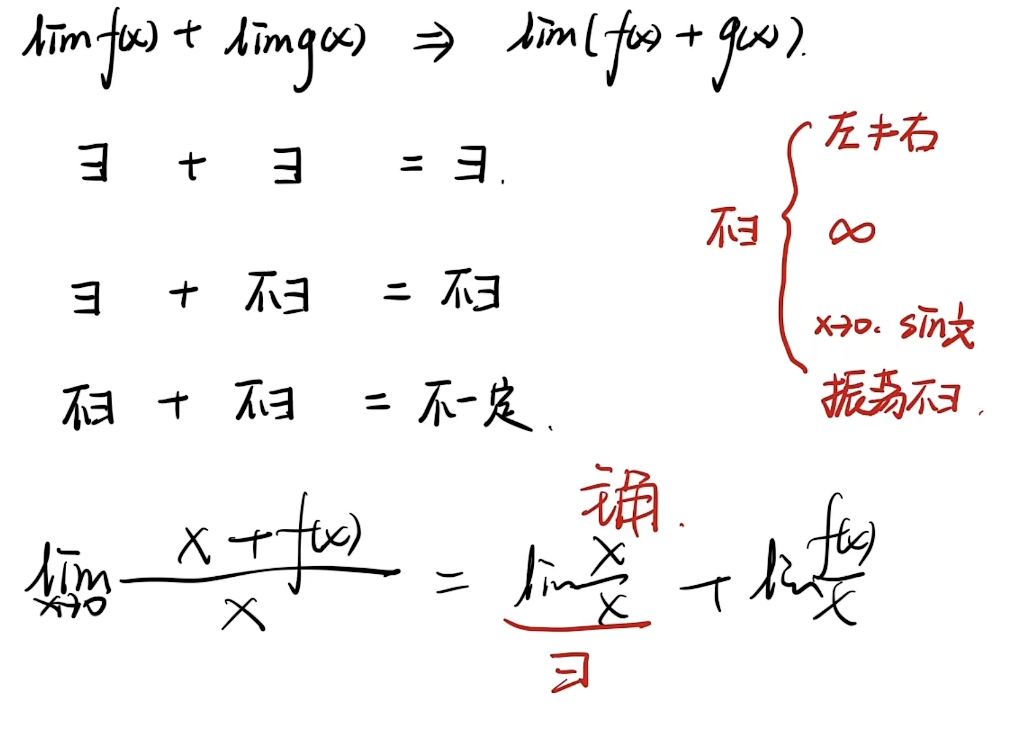 lim f(x) + lim g(x) ⇒ lim(f(x) + g(x)).
∃ + ∃ = ∃.
∃ + 不∃ = 不∃
不∃ + 不∃ = 不一定.
不∃ {
左≠右
∞
x→0. sin 1/x
振荡不∃.
lim x→0 (x + f(x))/x = lim x/x + lim f(x)/x
∃